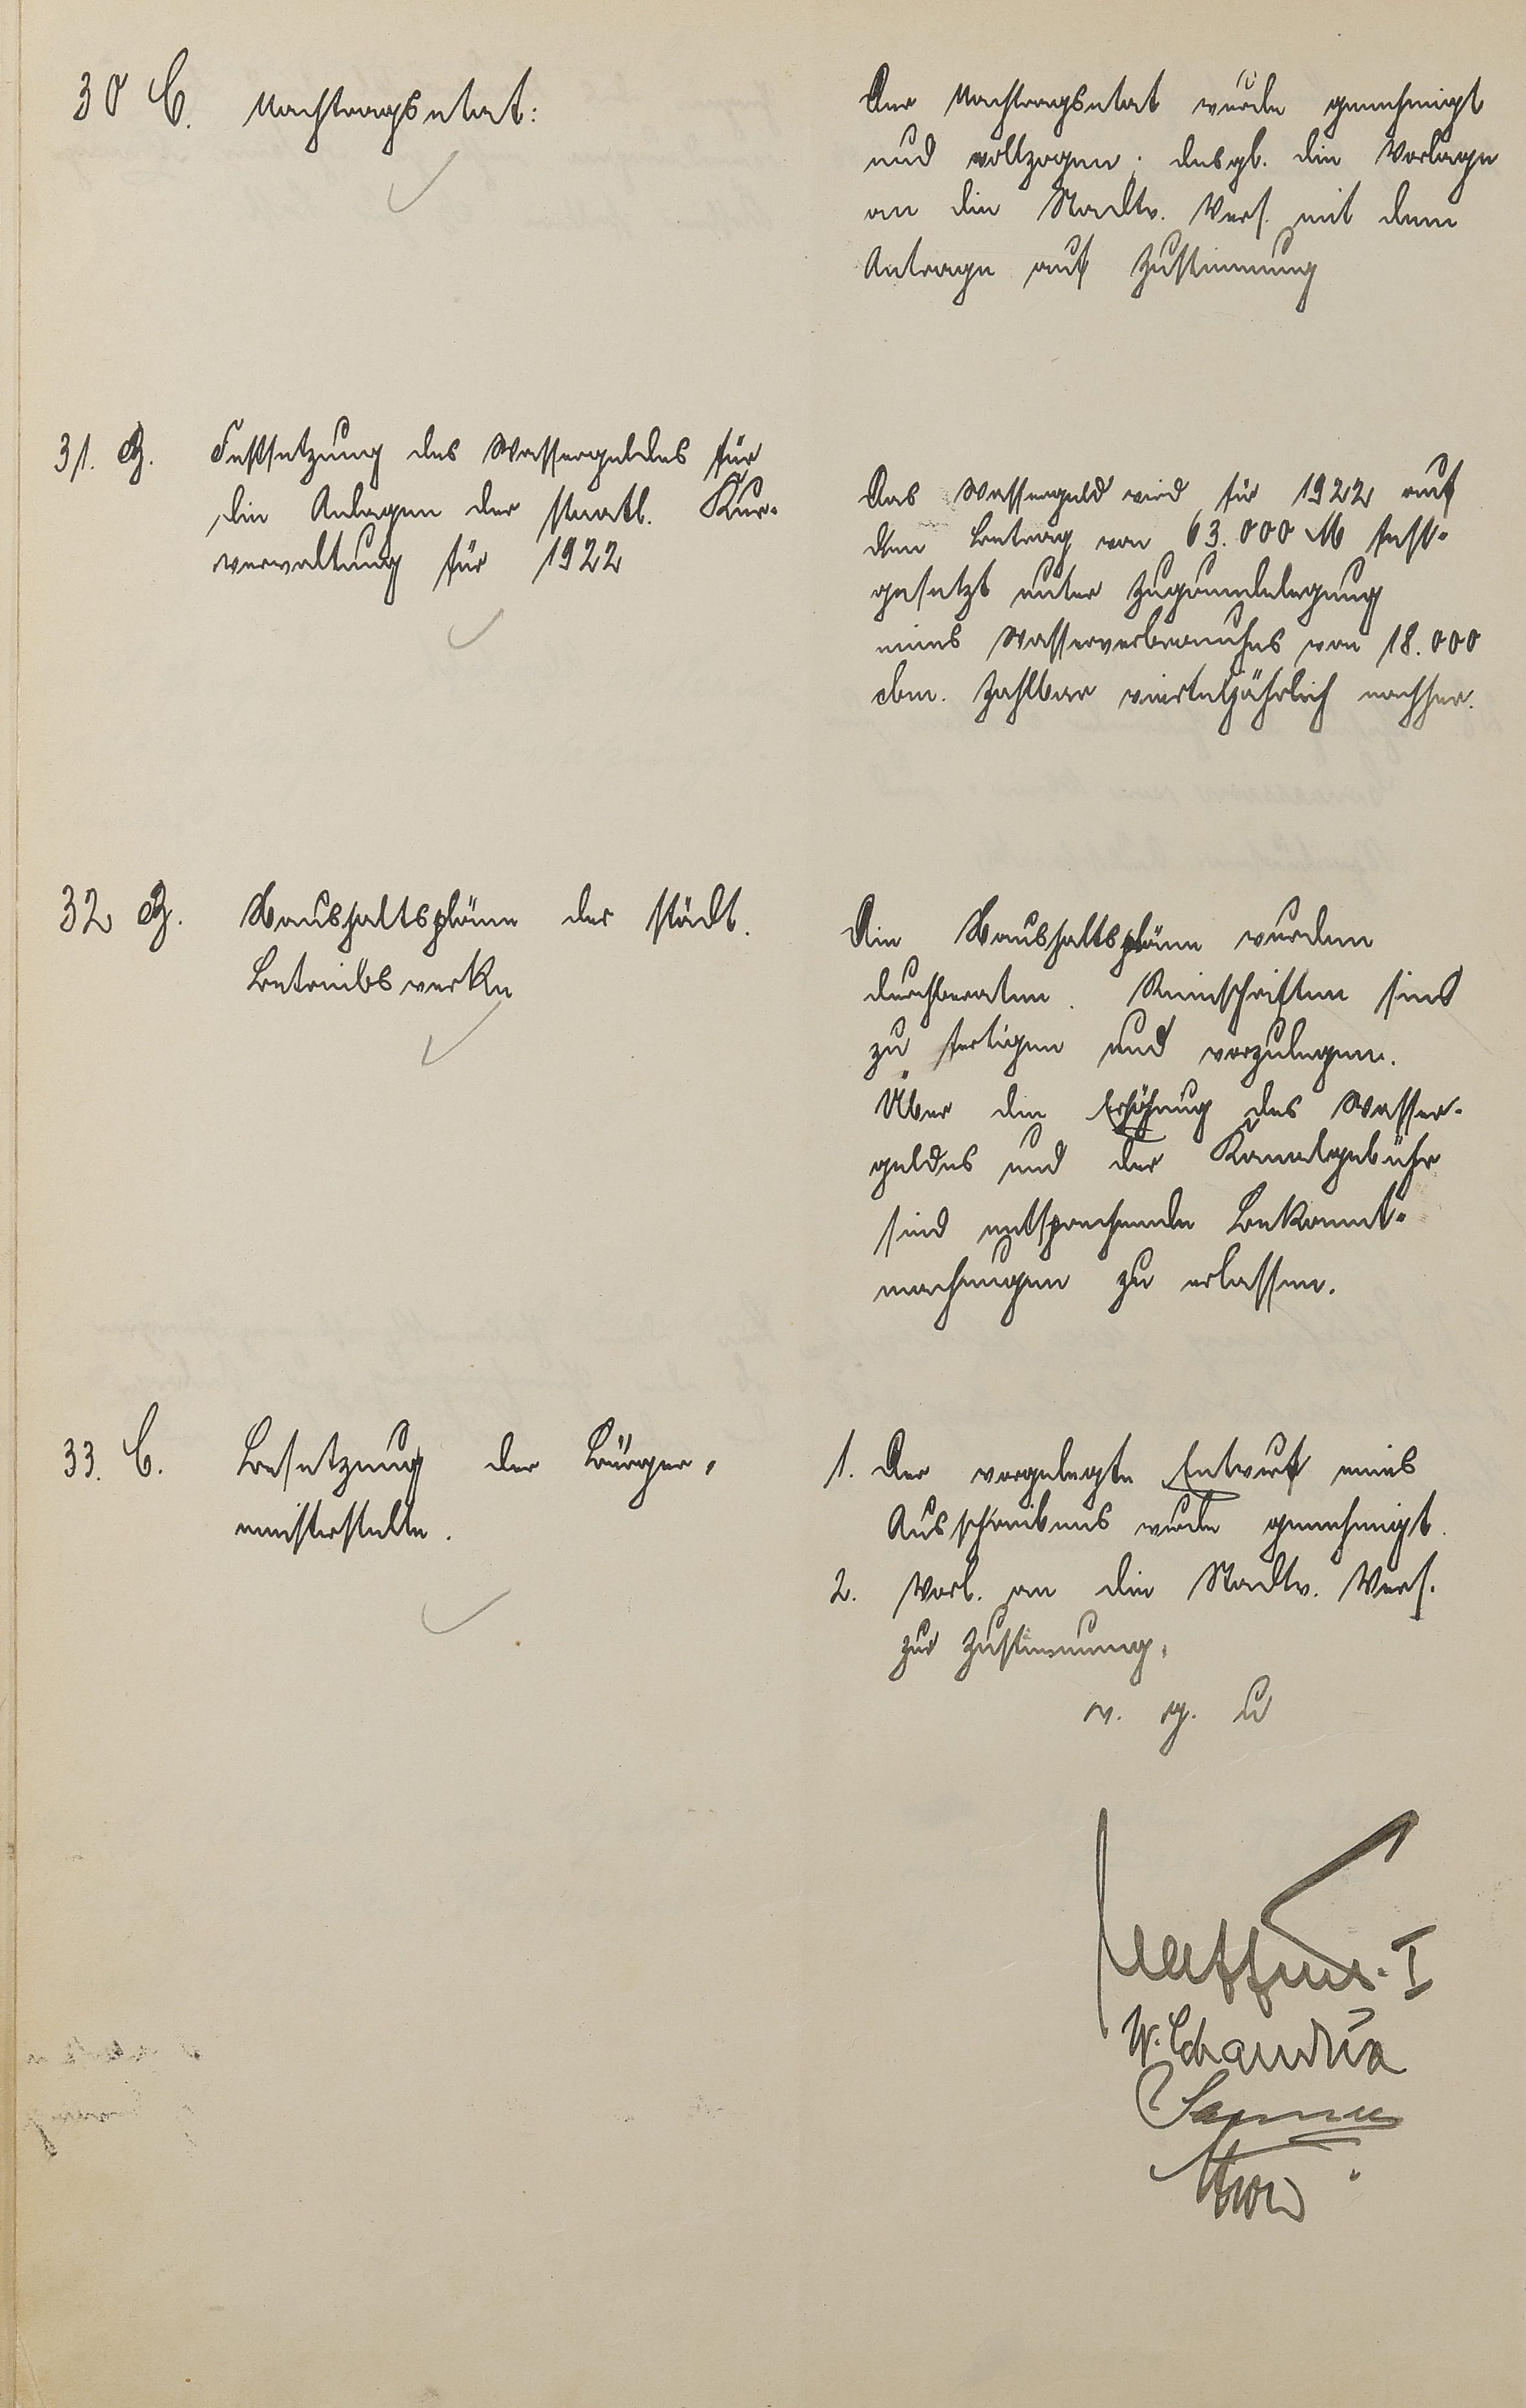 30 C. Nachtragsetat:
Der Nachtragsetat wurde genehmigt
und vollzogen; desgl. die Vorlage
an die Stadtv. Vers. mit dem
Antrage auf Zustimmung
31. B. Festsetzung des Wassergeldes für
die Anlagen der staatl. Kur-
verwaltung für 1922
Das Wassergeld wird für 1922 auf
den Betrag von 63.000 M fest-
gesetzt unter Zugrundelegung
eines Wasserverbrauches von 18.000
cbm. Zahlbar vierteljährlich nachher.
32 B. Haushaltspläne der städt.
Betriebswerke
Die Haushaltspläne wurden
durchberaten. Reinschriften sind
zu fertigen und vorzulegen.
Über die Erhöhung des Wasser-
geldes und der Kanalgebühr
sind entsprechende Bekannt-
machungen zu erlassen.
33. C. Besetzung der Bürger-
meisterstelle.
1. Der vorgelegte Entwurf eines
Ausschreibens wurde genehmigt.
2. Vorl. an die Stadtv. Vers.
zur Zustimmung.
v. g. u